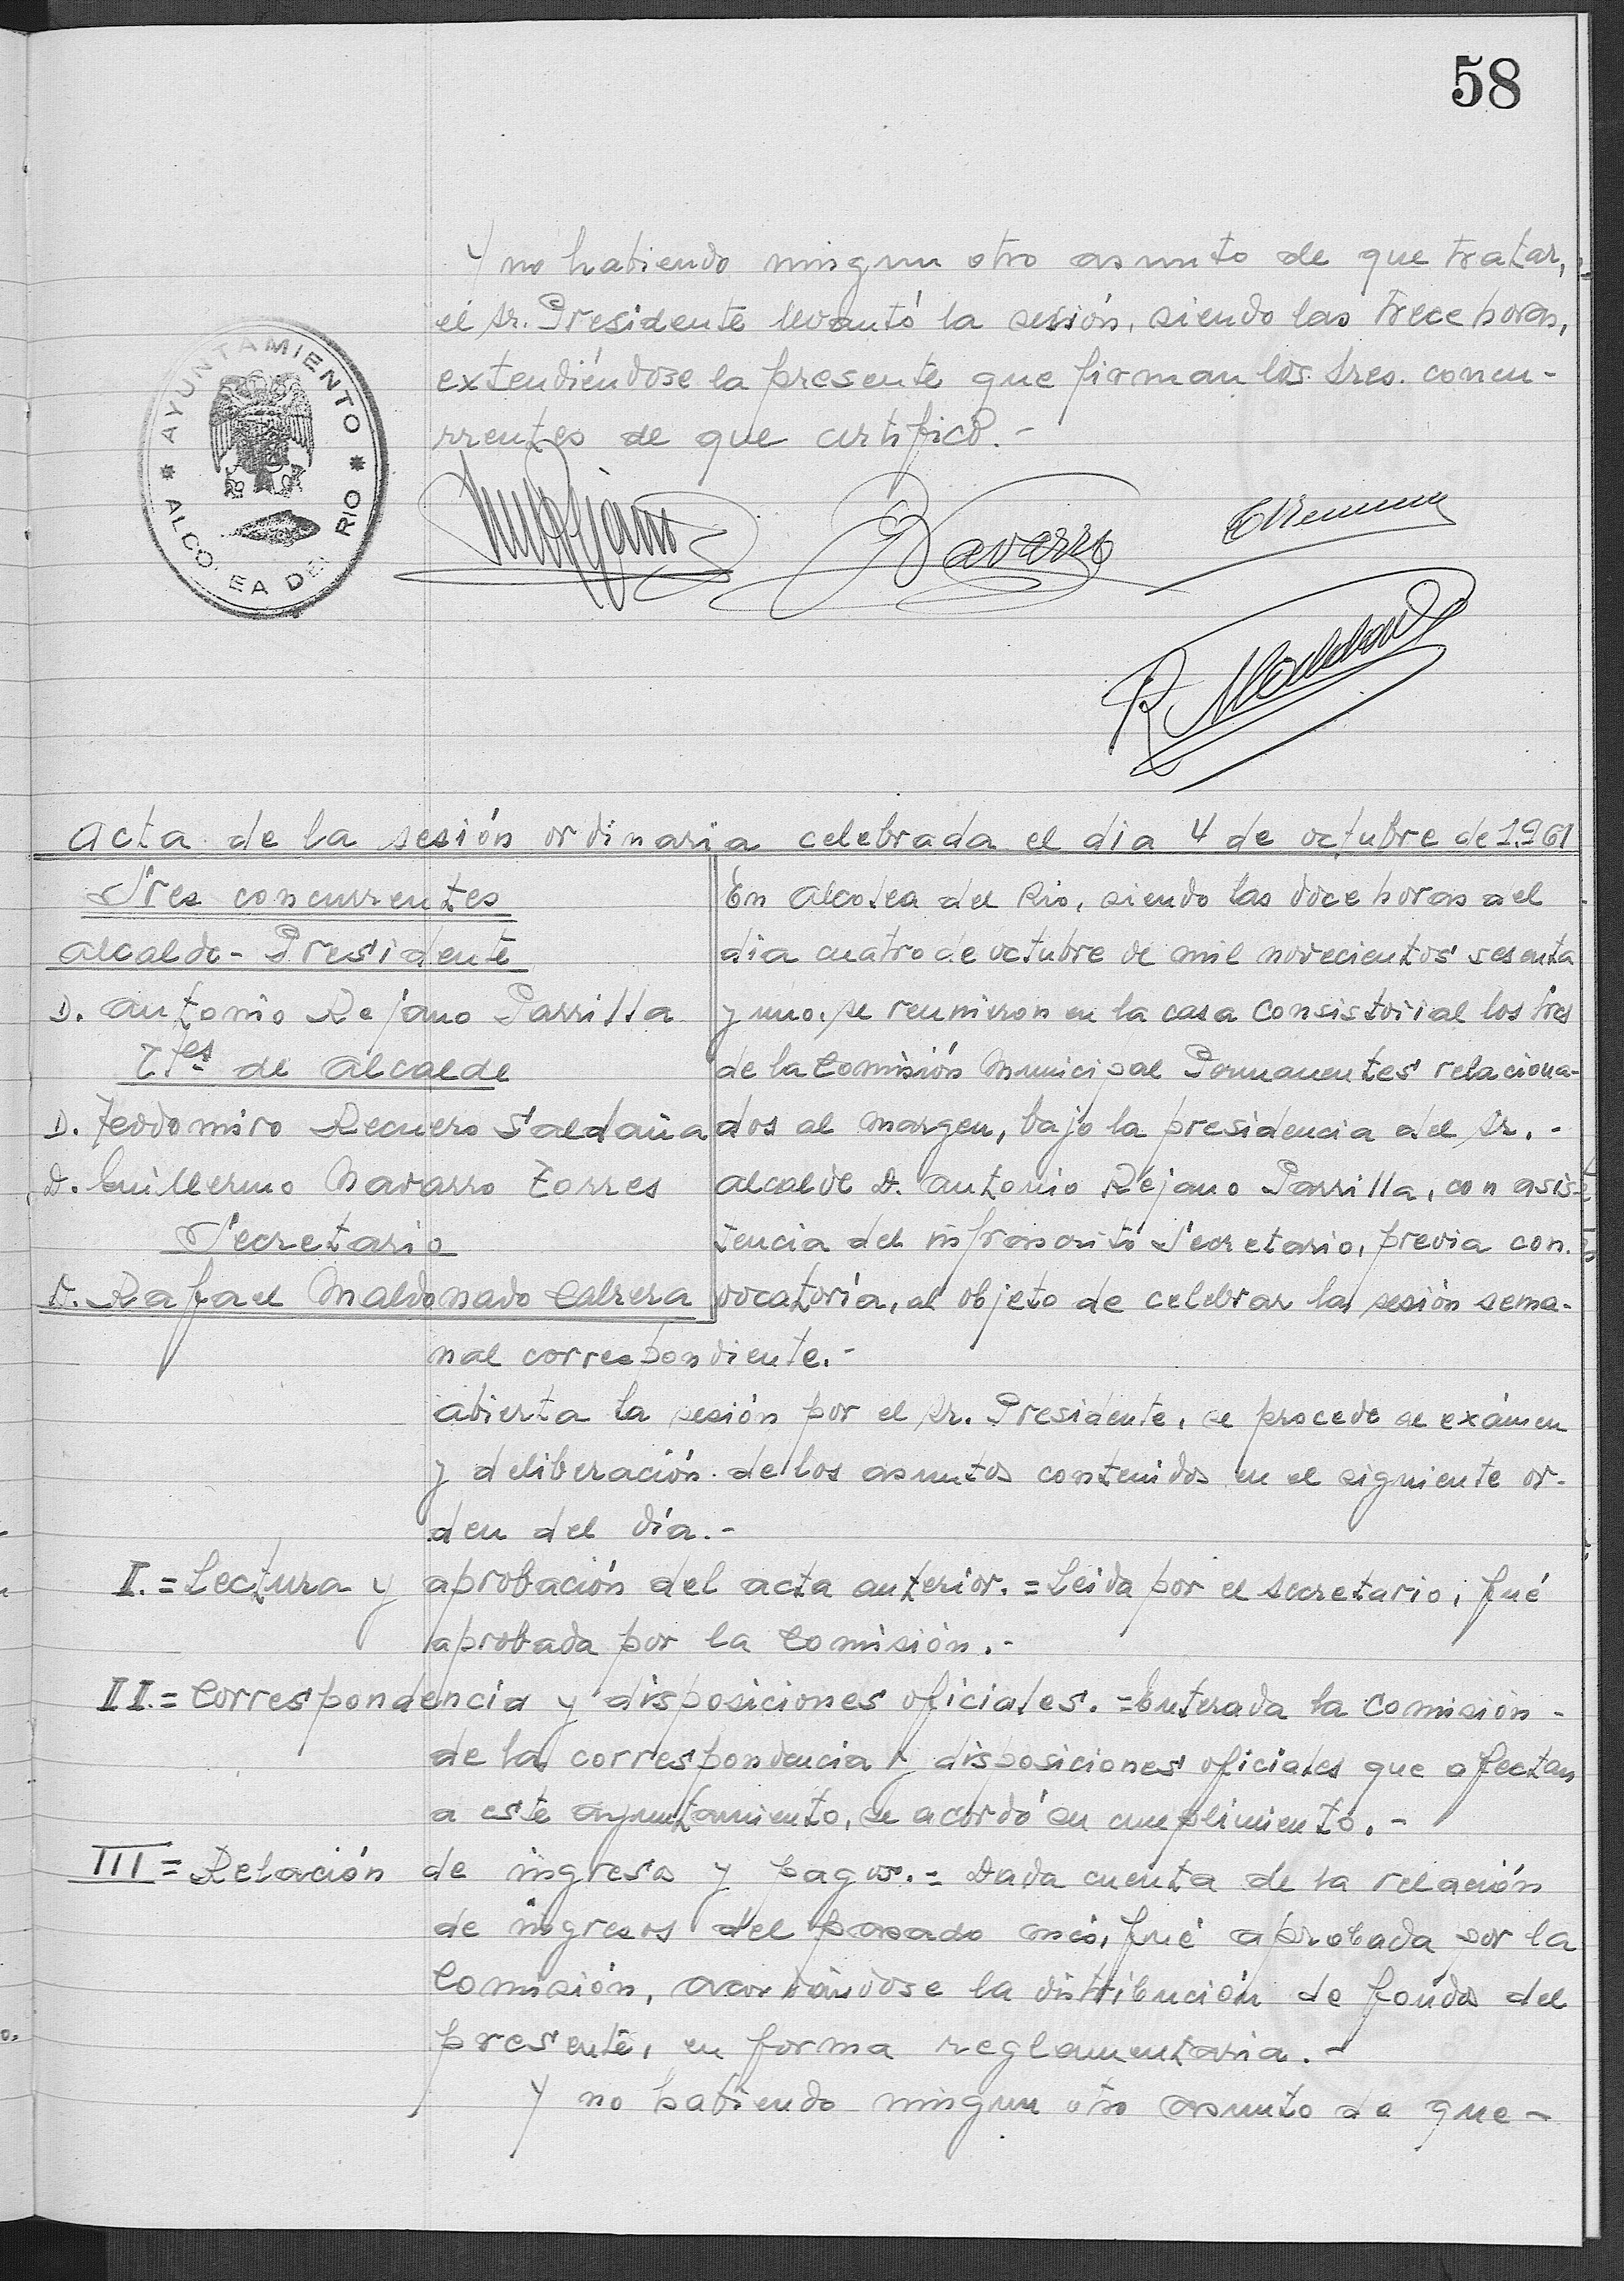 58
Y no habiendo ningun otro asunto de que tratar,
el Sr. Presidente levantó la sesión, siendo las trece horas,
extendiéndose la presente que firman los Sres. concu-
rrentes de que certifico.-
AYUNTAMIENTO
ALCO EA DE RIO
Navarro
R Maldonado
Acta de la sesión ordinaria celebrada el dia 4 de octubre de 1.961
Sres concurrentes
Alcalde-Presidente
D. Antonio Rejano Parrilla
T.tes de Alcalde
D. Teodomiro Recuero Saldaña
D. Guillermo Navarro Torres
Secretario
D. Rafael Maldonado Cabrera
En Alcolea del Rio, siendo las doce horas del
dia cuatro de octubre de mil novecientos sesenta
y uno, se reunieron en la casa Consistorial los Sres
de la Comisión Municipal Permanentes relaciona-
dos al margen, bajo la presidencia del Sr.-
alcalde D. Antonio Rejano Parrilla, con asis-
tencia del infrascrito Secretario, previa con-
vocatoria, al objeto de celebrar la sesión sema-
nal correspondiente.-
Abierta la sesión por el Sr. Presidente, se procede al exámen
y deliberación de los asuntos contenidos en el siguiente or-
den del día.-
I.=Lectura y aprobación del acta anterior.=Leida por el secretario, fué
aprobada por la Comisión.-
II.=Correspondencia y disposiciones oficiales.=Enterada la Comisión-
de la correspondencia y disposiciones oficiales que afectan
a este ayuntamiento, se acordó su cumplimiento.-
III=Relación de ingresos y pagos.=Dada cuenta de la relación
de ingresos del pasado mes, fué aprobada por la
Comisión, acordándose la distribución de fondos del
presente, en forma reglamentaria.-
Y no habiendo ningun otro asunto de que-